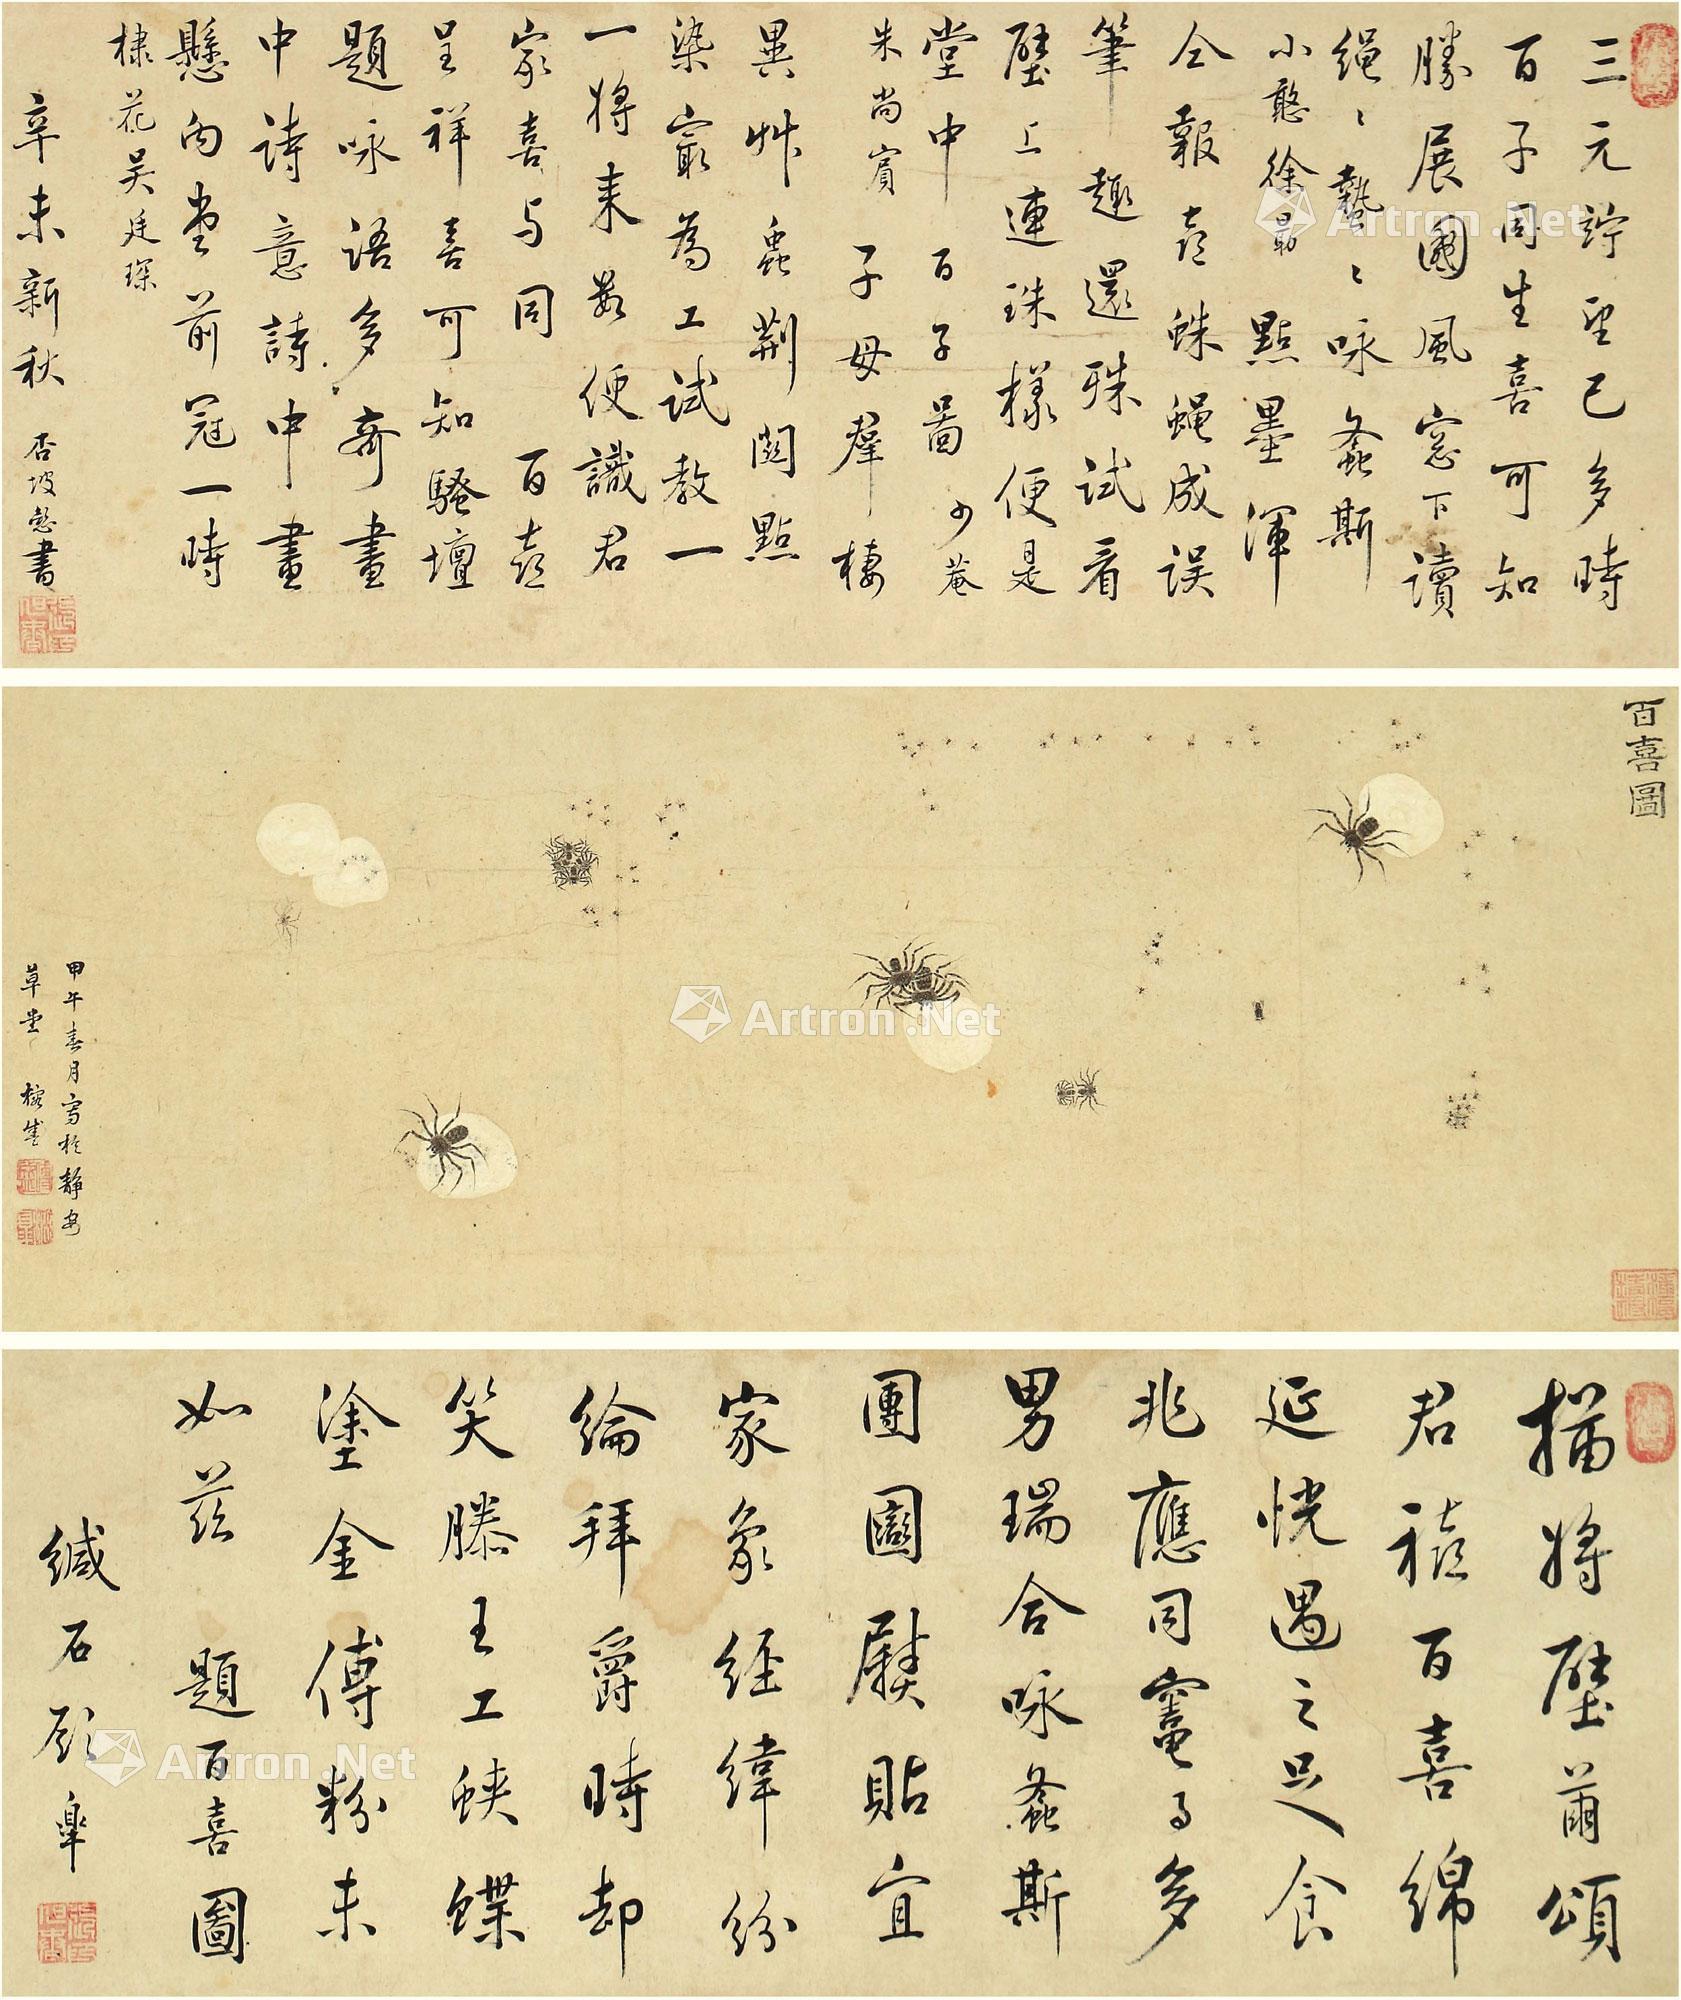 三元竚望已多時
百子同生喜可知
勝展國風窓下讀
繩〻蟄〻咏螽斯
小憨徐勗
點墨渾
仝報喜蛛蠅成误
筆 趣還殊試看
壁上連珠樣便是
堂中百子啚 少菴
朱尚賓 子母群棲
異艸蟲荆関點
染寂為工試教一
一將来㪅便識君
家喜与同 百喜
呈祥喜可知騷壇
題咏語多奇畫
中詩意詩中畫
懸向堂前冠一時
棣花吴廷琛
辛未新秋 杏坡 書
百喜圖
甲午春月写於静安
草堂
描將壁蕑頌
君禧百喜綿
延恍遇之足食
兆應同窶多
男瑞合咏螽斯
團圞 貼宜
家象經緯紛
綸拜爵時却
笑滕王工蛺蝶
塗金傅粉未
如兹 題百喜圖
緘石 皐
Artron.Net
Artron.Net
Artron.Net
Artron.Net
Artron.Net